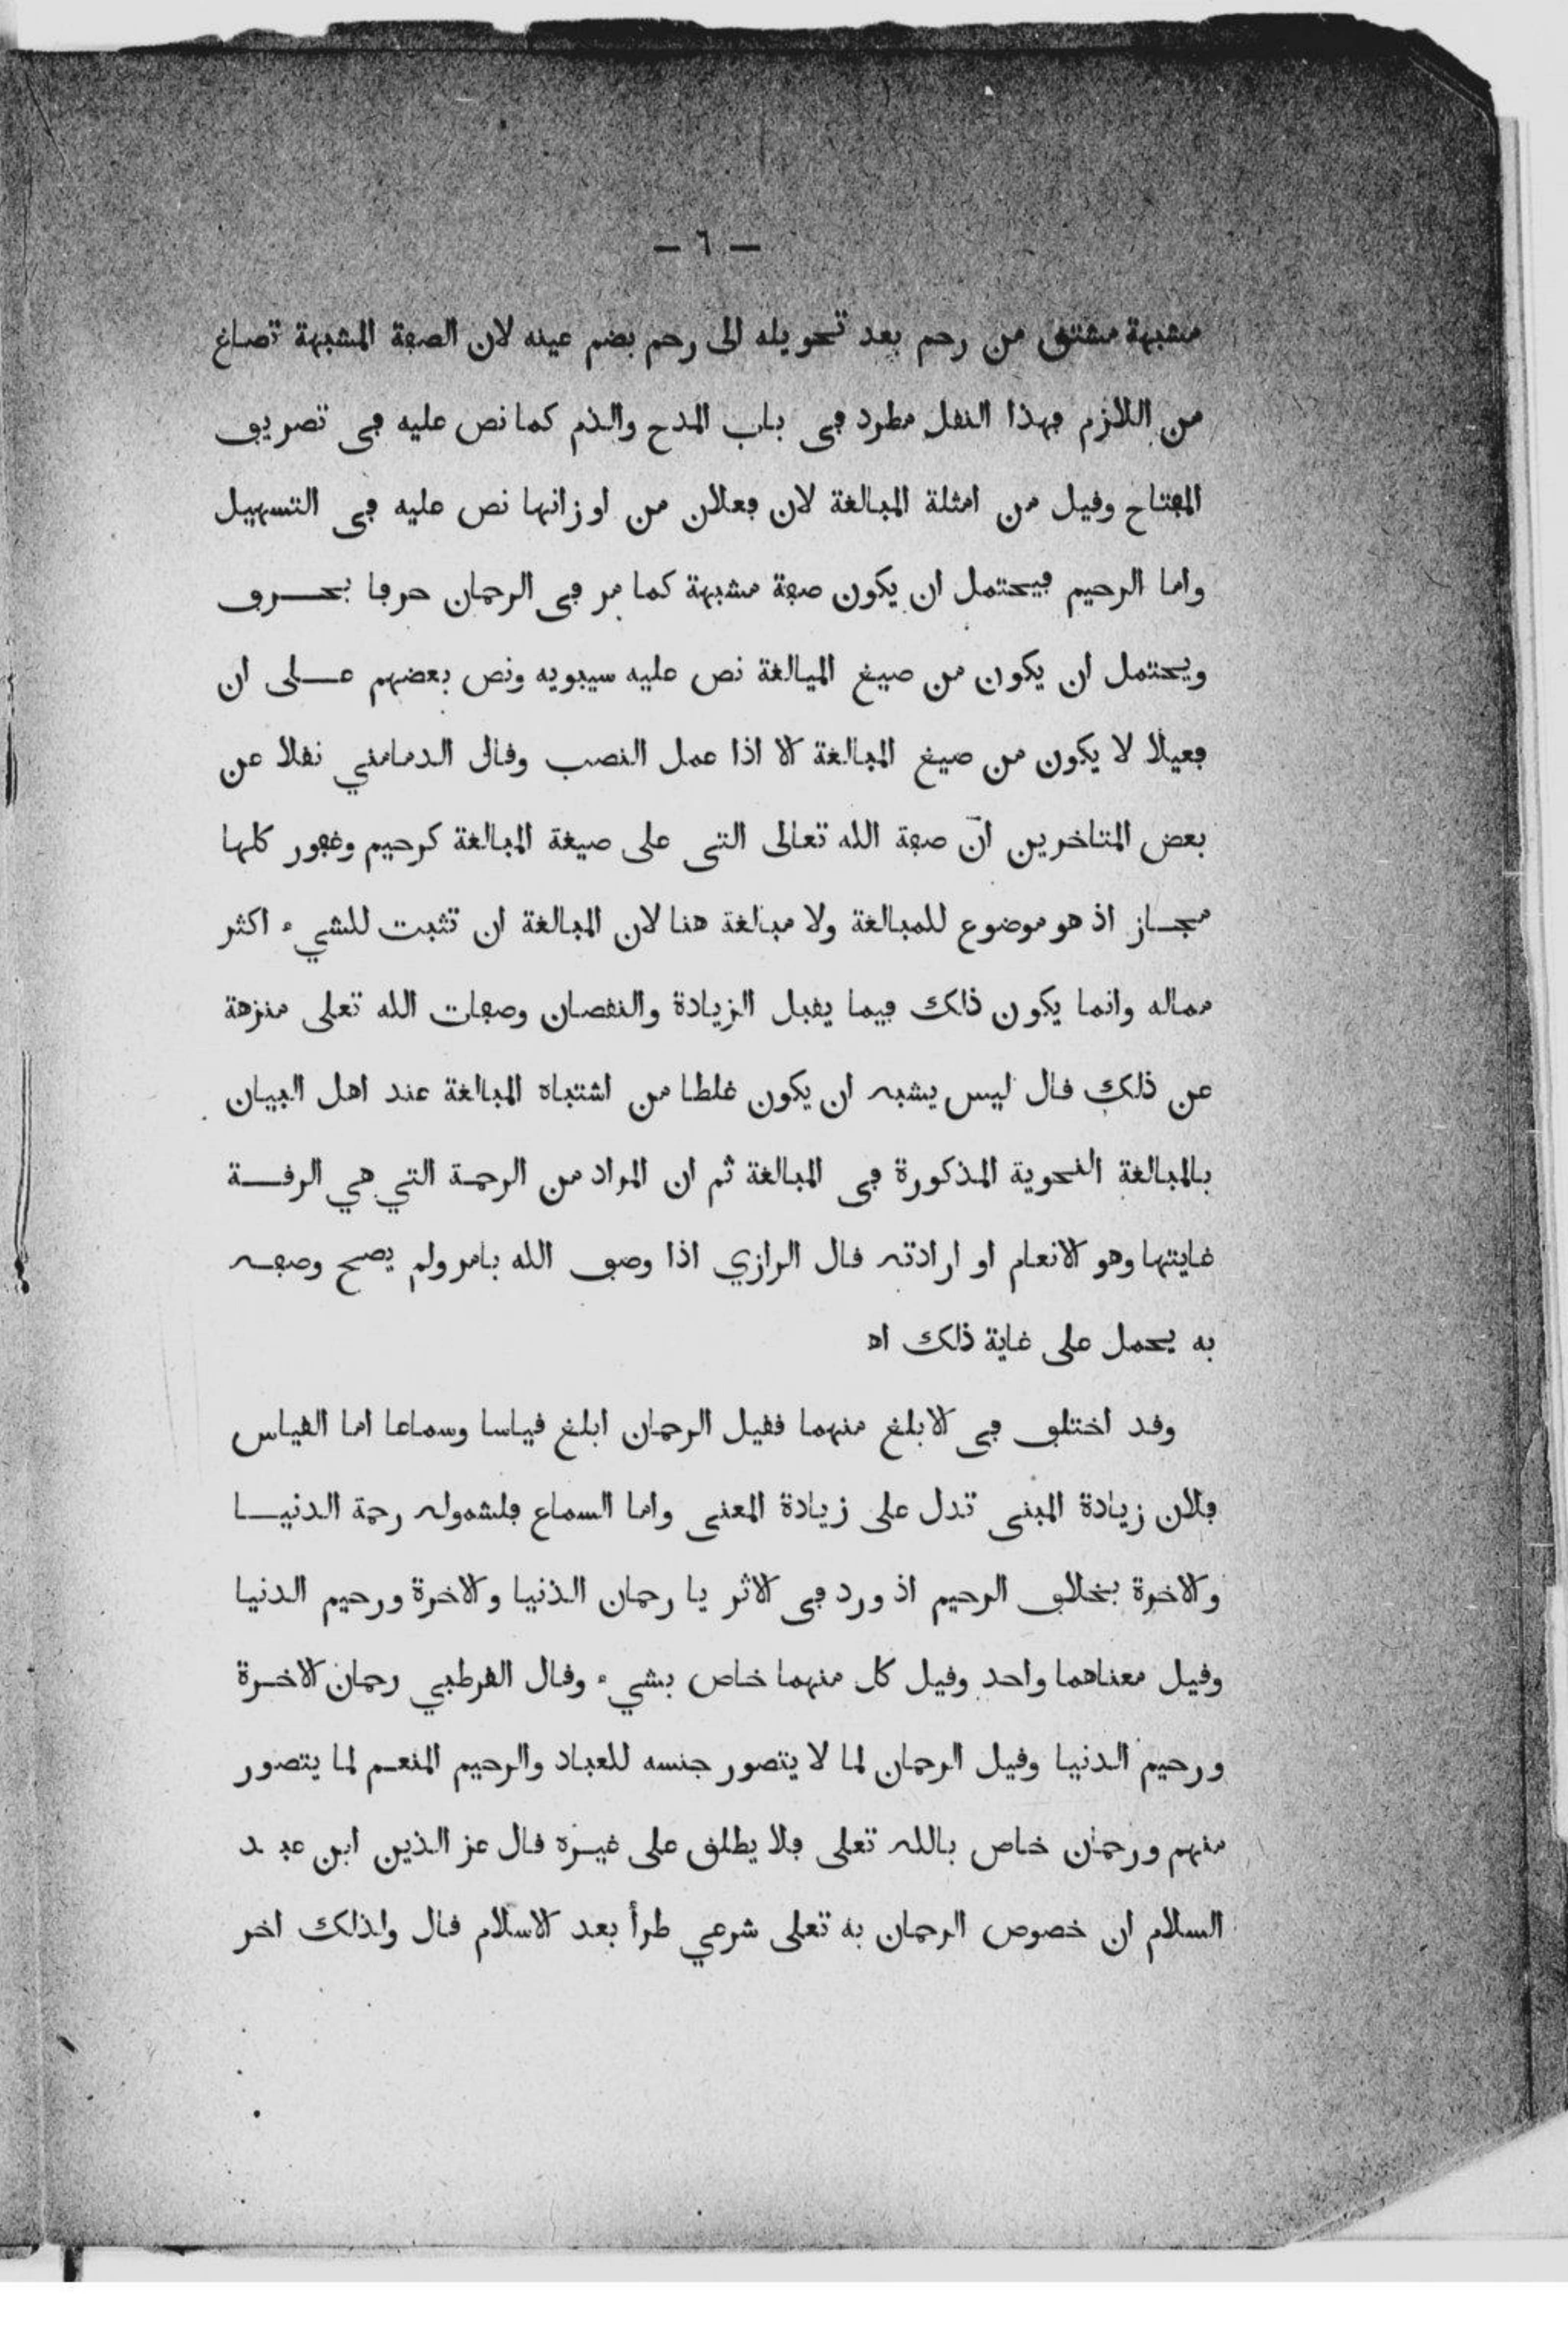 — ٦ —
مشبهة مشتق من رحم بعد تحويله الى رحم بضم عينه لان الصفة المشبهة تصاغ
من اللازم فهذا النقل مطرد في باب المدح والذم كما نص عليه في تصريف
المفتاح وقيل من امثلة المبالغة لان فعلان من اوزانها نص عليه في التسهيل
واما الرحيم فيحتمل ان يكون صفة مشبهة كما مر في الرحمان حرفا بحرف
ويحتمل ان يكون من صيغ الميالغة نص عليه سيبويه ونص بعضهم على ان
فعيلا لا يكون من صيغ المبالغة الا اذا عمل النصب وقال الدمامني نقلا عن
بعض المتاخرين انّ صفة الله تعالى التى على صيغة المبالغة كرحيم وغفور كلها
مجاز اذ هو موضوع للمبالغة ولا مبالغة هنا لان المبالغة ان تثبت للشيء اكثر
مماله وانما يكون ذلك فيما يقبل الزيادة والنقصان وصفات الله تعلى منزهة
عن ذلك قال ليس يشبه ان يكون غلطا من اشتباه المبالغة عند اهل البيان
بالمبالغة النحوية المذكورة في المبالغة ثم ان المراد من الرحمة التي هي الرقة
غايتها وهو الانعام او ارادته قال الرازي اذا وصف الله بامر ولم يصح وصفه
به يحمل على غاية ذلك اه
وقد اختلف في الابلغ منهما فقيل الرحمان ابلغ قياسا وسماعا اما القياس
فلان زيادة المبنى تدل على زيادة المعنى واما السماع فلشموله رحمة الدنيا
والاخرة بخلاف الرحيم اذ ورد في الاثر يا رحمان الذنيا والاخرة ورحيم الدنيا
وقيل معناهما واحد وقيل كل منهما خاص بشيء وقال القرطبي رحمان الاخرة
ورحيم الدنيا وقيل الرحمان لما لا يتصور جنسه للعباد والرحيم المنعم لما يتصور
منهم ورحمان خاص بالله تعلى فلا يطلق على غيره قال عز الذين ابن عبد
السلام ان خصوص الرحمان به تعلى شرعي طرأ بعد الاسلام قال ولذلك اخر